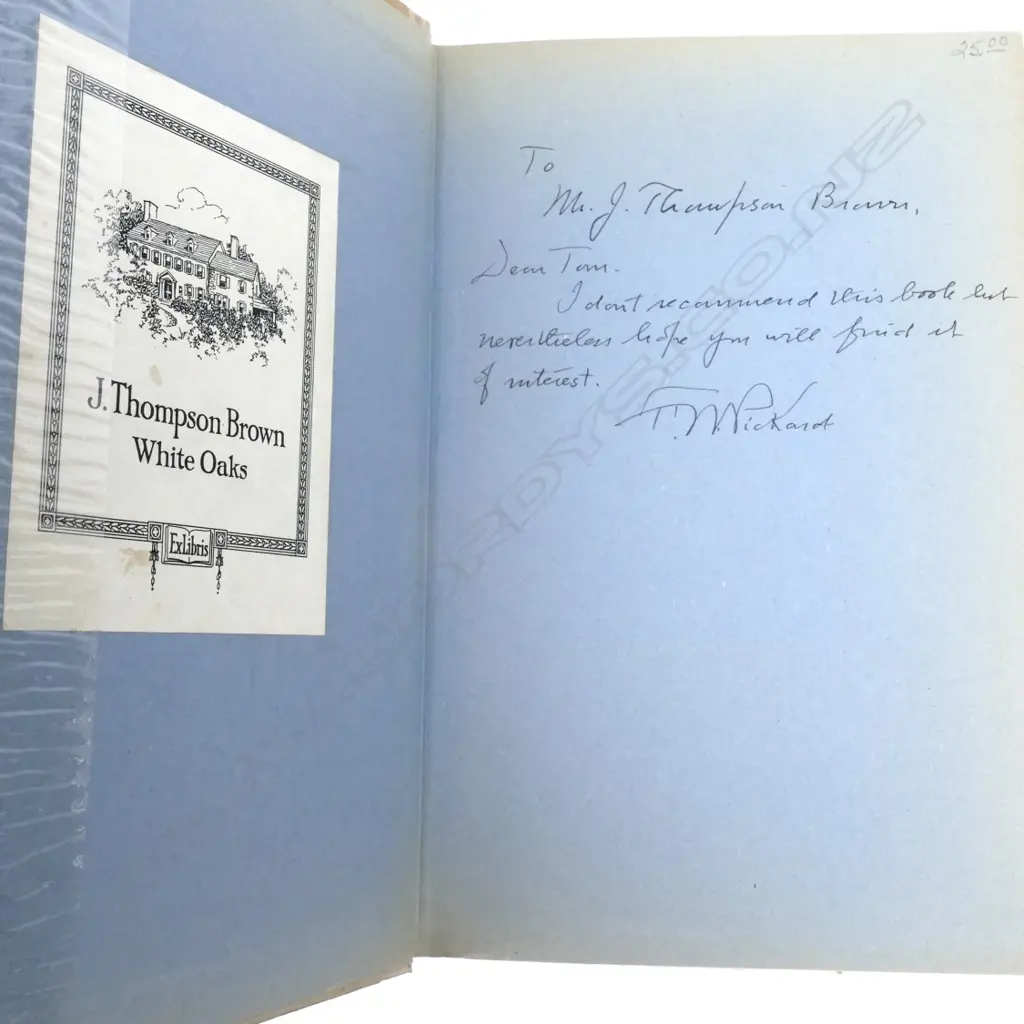 J. Thompson Brown
White Oaks
Ex Libris
25.00
To
Mr. J. Thompson Brown.
Dear Tom.
I dont recommend this book but
nevertheless hope you will find it
of interest.
T. W. Pickard